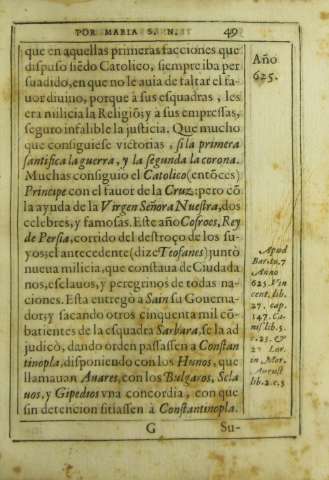 POR MARIA S. N. 49
que en aquellas primeras facciones que
dispuso siẽdo Catolico, siempre iba per
suadido, en que no le auia de faltar el fa-
uor diuino, porque à sus esquadras, les
era milicia la Religiõ; y à sus empressas,
seguro infalible la justicia. Que mucho
que consiguiese victorias, si la primera
santifica la guerra, y la segunda la corona.
Muchas consiguio el Catolico (entõces)
Principe con el fauor de la Cruz: pero cõ
la ayuda de la Virgen Señora Nuestra, dos
celebres, y famosas. Este año Cosroes, Rey
de Persia, corrido del destroço de los su-
yos; el antecedente (dize Teofanes) juntò
nueua milicia, que constaua de Ciudada
nos, esclauos, y peregrinos de todas na-
ciones. Esta entregò a Sain su Gouerna-
dor; y sacando otros cinquenta mil cõ-
batientes de la esquadra Sarbara, se la ad
judicò, dando orden passassen a Constan
tinopla, disponiendo con los Hunos, que
llamauan Auares, con los Bulgaros, Scla
uos, y Gipedios vna concordia, con que
sin detencion sitiassen à Constantinopla.
G Su-
Año
625.
Apud
Bar. to. 7
Anno
625. Vin
cent. lib.
27. cap.
147. Ca-
nis. lib. 5.
c. 25. &
Lor.
in Mor.
August
lib. 2. c. 5